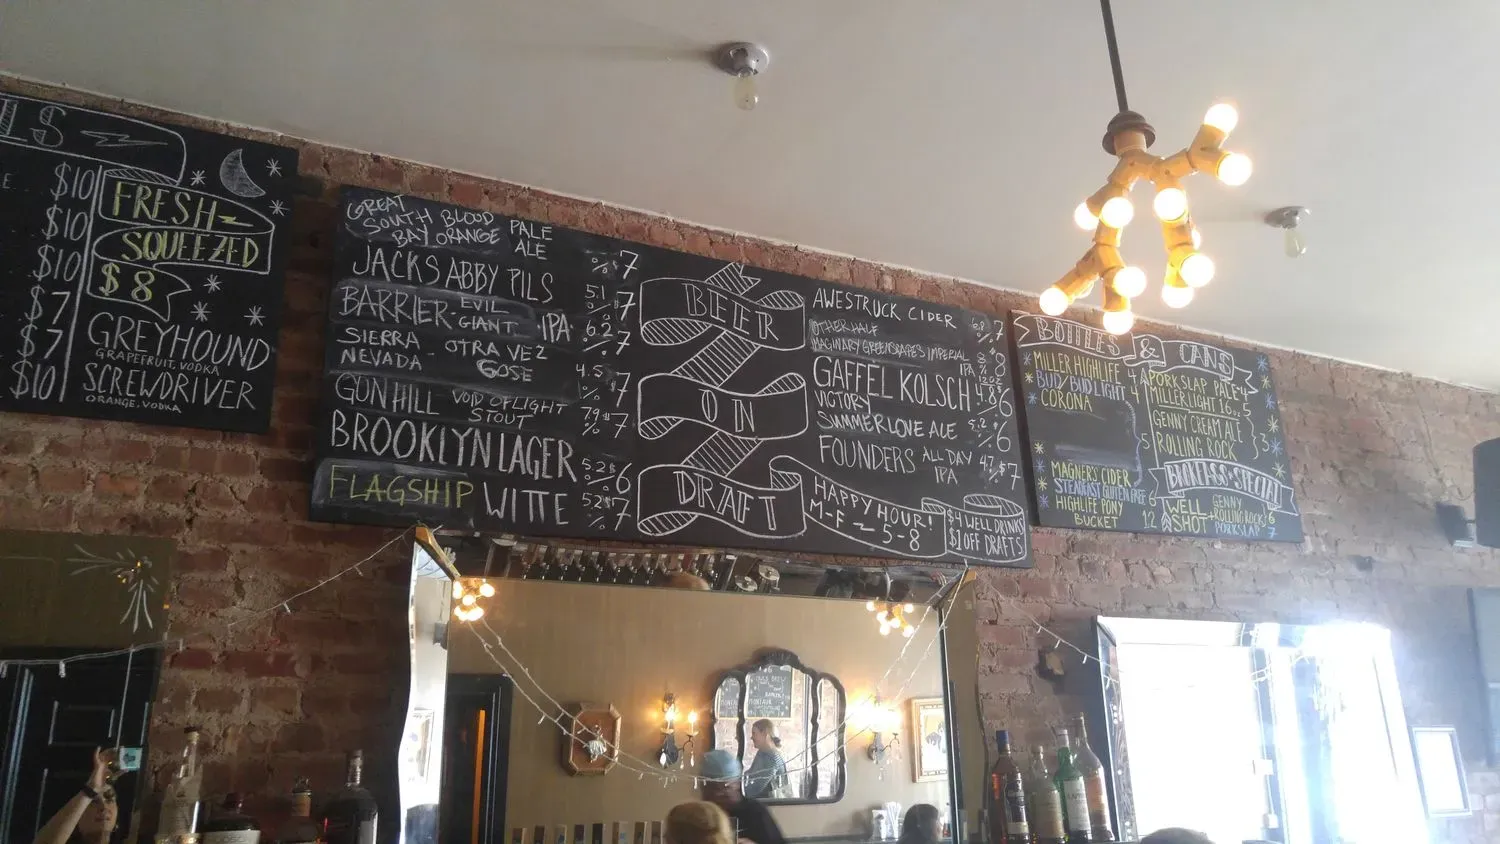 LS
$10
$10
$10
$7
$7
$10
FRESH
SQUEEZED
$8
GREYHOUND
GRAPEFRUIT, VODKA
SCREWDRIVER
ORANGE, VODKA
GREAT
SOUTH BLOOD PALE
BAY ORANGE ALE
% 7
JACKS ABBY PILS 5.1 % 7
BARRIER- EVIL
GIANT IPA 6.2 % 7
SIERRA- OTRA VEZ
NEVADA- GOSE 4.5 % 7
GUN HILL VOID OF LIGHT
STOUT 7.9 % 7
BROOKLYN LAGER 5.2 % $6
FLAGSHIP WITTE 5.2 % $7
BEER
ON
DRAFT
AWESTRUCK CIDER 6.8 % 7
OTHER HALF
IMAGINARY GREENSCAPES IMPERIAL
IPA 8 % 8
12OZ
GAFFEL KOLSCH 4.8 % $6
VICTORY
SUMMER LOVE ALE 5.2 % $6
FOUNDERS ALL DAY
IPA 4.7 % $7
HAPPY HOUR!
M-F 5-8
$4 WELL DRINKS
$1 OFF DRAFTS
BOTTLES & CANS
MILLER HIGHLIFE 4
BUD/BUD LIGHT 4
CORONA
5
MAGNER'S CIDER
STEADFAST GLUTEN FREE 6
HIGHLIFE PONY
BUCKET 12
PORKSLAP PALE 4
MILLER LIGHT 16oz 5
GENNY CREAM ALE
ROLLING ROCK 3
BROKE ASS SPECIAL
WELL
SHOT
GENNY
ROLLING ROCK 6
PORKSLAP 7